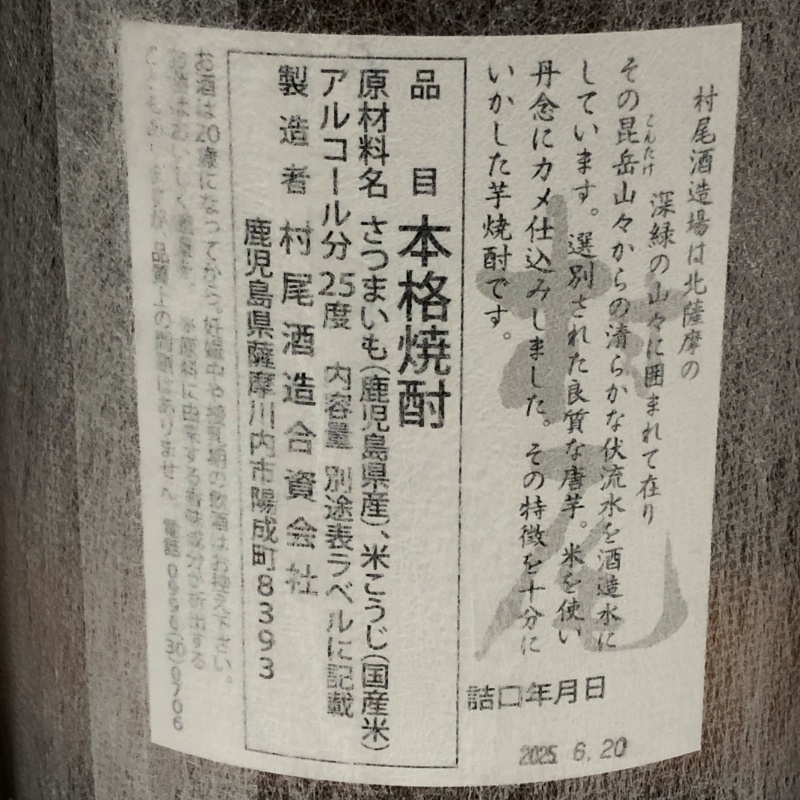 村尾酒造場は北薩摩の
こんたけ
深緑の山々に囲まれて在り
その昆岳山々からの清らかな伏流水を酒造水に
しています。選別された良質な唐芋。米を使い
丹念にカメ仕込みしました。その特徴を十分に
いかした芋焼酎です。
詰口年月日
2025. 6. 20
品目 本格焼酎
原材料名 さつまいも(鹿児島県産)、米こうじ(国産米)
アルコール分 25度 内容量 別途表ラベルに記載
製造者 村尾酒造合資会社
鹿児島県薩摩川内市陽成町8393
お酒は20歳になってから。妊娠中や授乳期の飲酒はお控え下さい。
お酒はおいしく適量を。 ※原料に由来する香味成分が析出する
品質上の問題はありません。 電話0996(30)0706